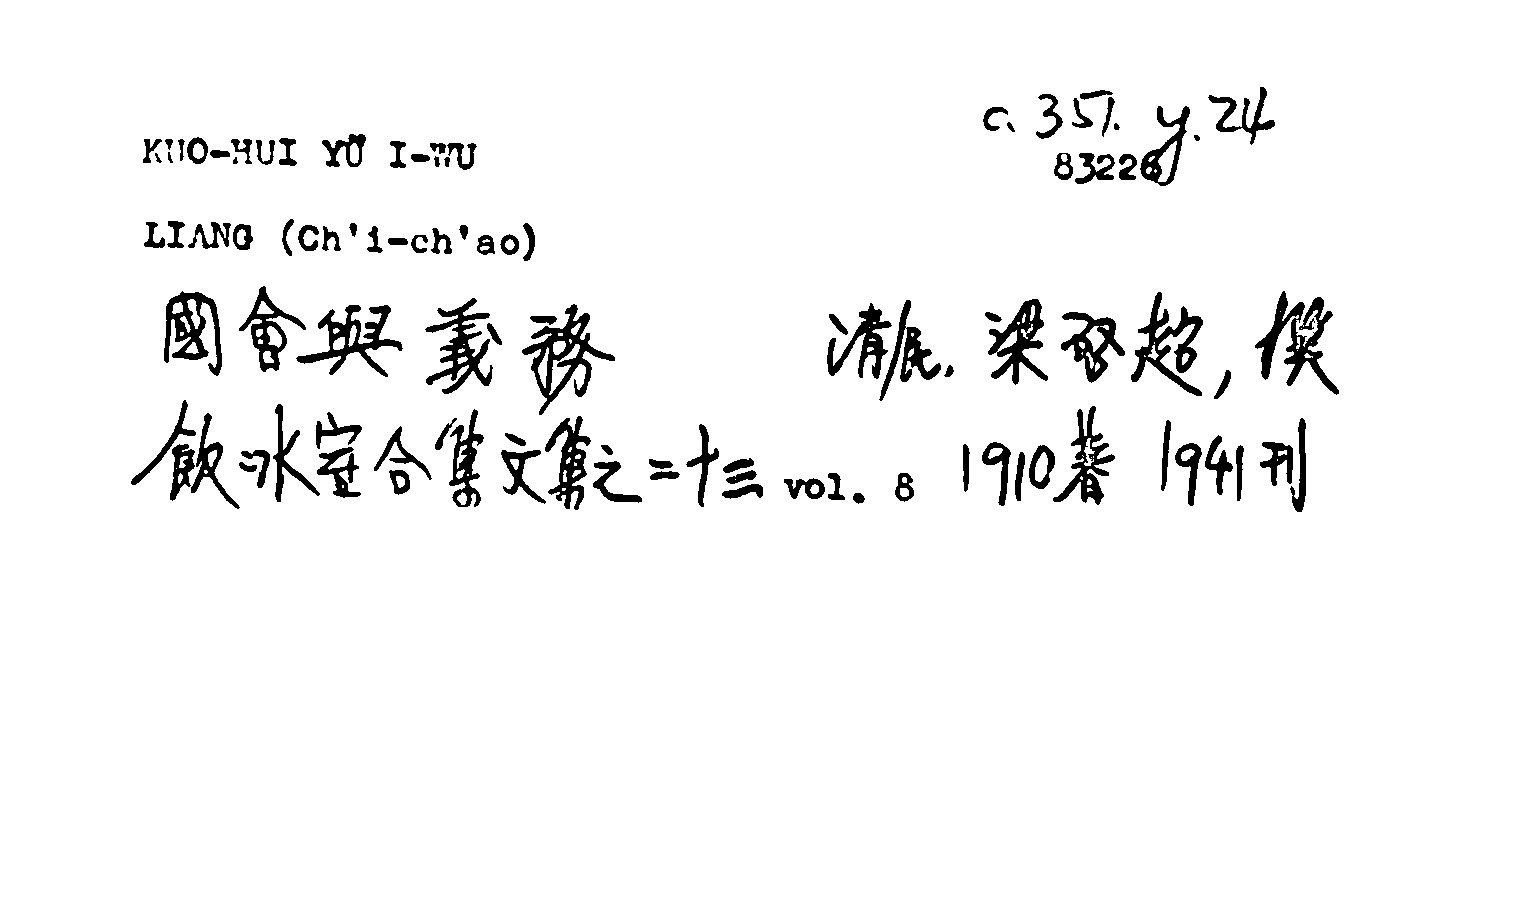 c. 351. y. 24
83226
KUO-HUI YÜ I-WU
LIANG (Ch'i-ch'ao)
國會與義務 清民. 梁啓超, 撰
飲冰室合集文集之二十三 vol. 8 1910著 1941刊